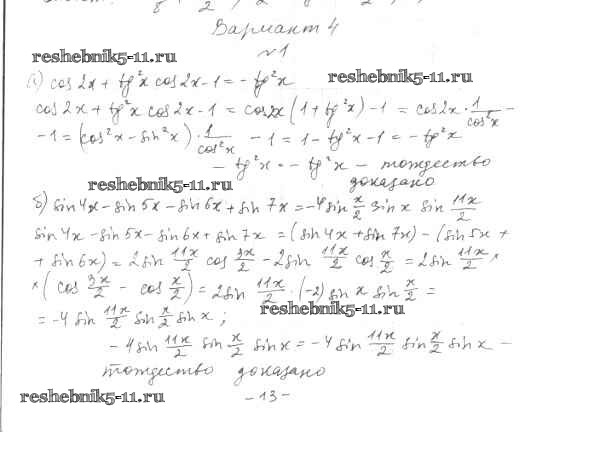 Вариант 4
№1
reshebnik5-11.ru
а) cos 2x + tg²x cos 2x - 1 = - tg²x
reshebnik5-11.ru
cos 2x + tg²x cos 2x - 1 = cos 2x (1 + tg²x) - 1 = cos 2x · 1/cos²x -
- 1 = (cos²x - sin²x) · 1/cos²x - 1 = 1 - tg²x - 1 = - tg²x
- tg²x = - tg²x - тождество
доказано
reshebnik5-11.ru
б) sin 4x - sin 5x - sin 6x + sin 7x = -4 sin x/2 sin x sin 11x/2
sin 4x - sin 5x - sin 6x + sin 7x = (sin 4x + sin 7x) - (sin 5x +
+ sin 6x) = 2 sin 11x/2 cos 3x/2 - 2 sin 11x/2 cos x/2 = 2 sin 11x/2 ×
× (cos 3x/2 - cos x/2) = 2 sin 11x/2 · (-2) sin x sin x/2 =
reshebnik5-11.ru
= -4 sin 11x/2 sin x/2 sin x ;
- 4 sin 11x/2 sin x/2 sin x = -4 sin 11x/2 sin x/2 sin x -
тождество доказано
reshebnik5-11.ru
- 13 -